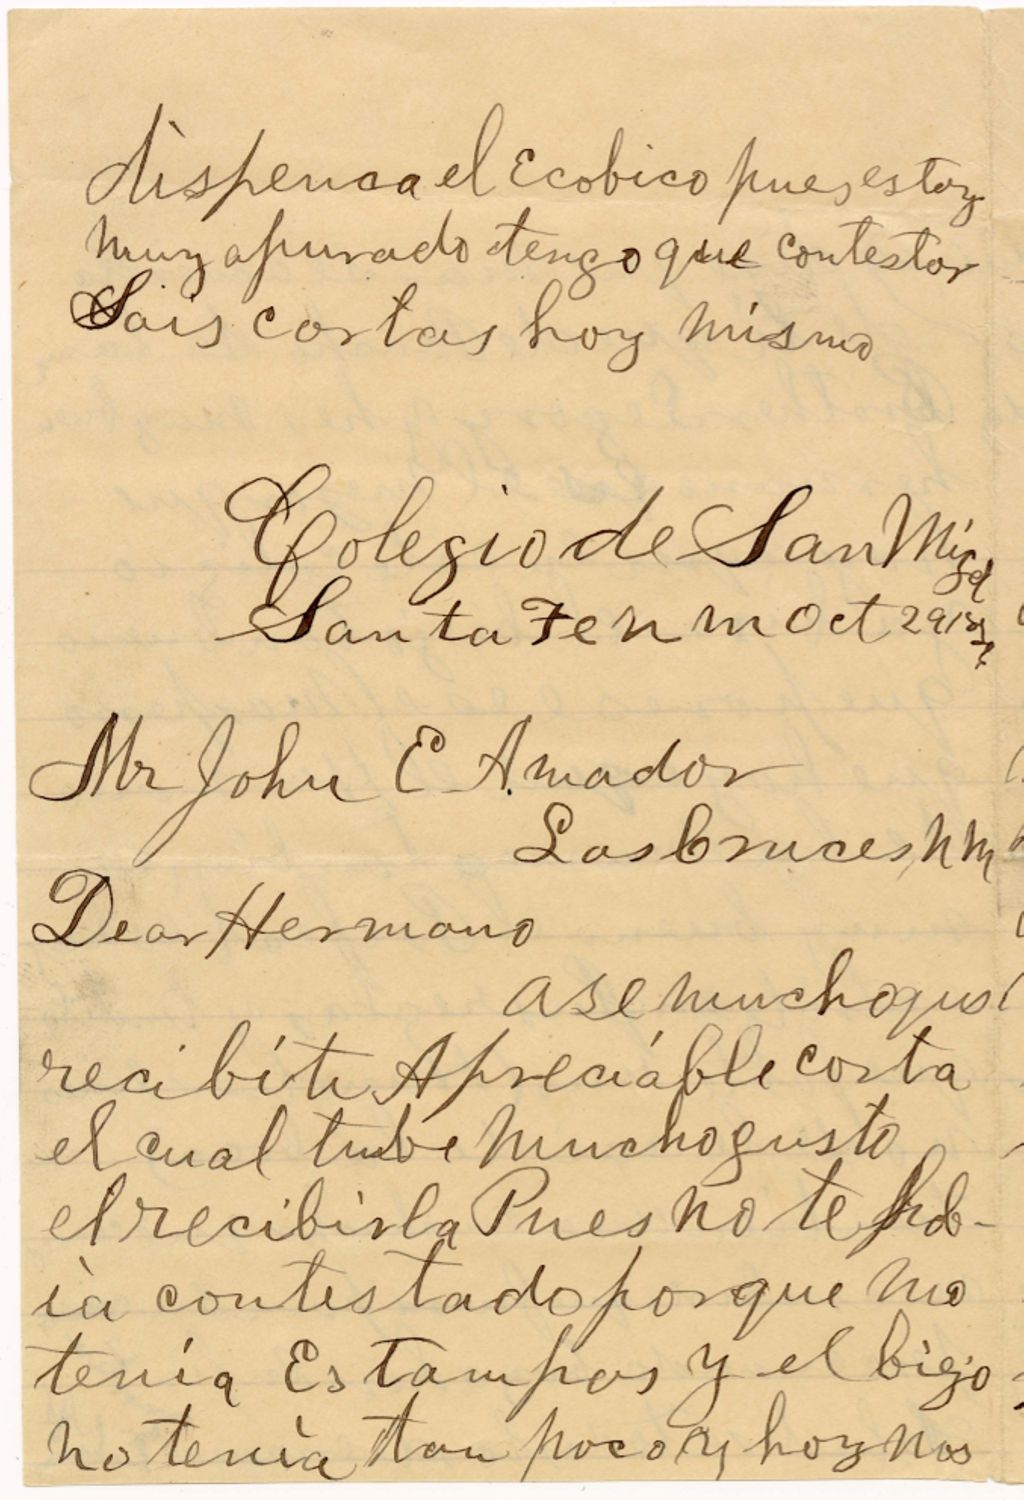 dispenca el Ecobico pues estoy
muy apurado tengo que contestar
Sais cartas hoy mismo
Colegio de San Migel
Santa Fe n m Oct 29 18
Mr John E Amador
Las Cruces, N M
Dear Hermano
ase mucho gus
recibi tu Apreciable carta
el cual tube mucho gusto
el recibirla Pues no te hab-
ia contestado porque no
tenia Estampas y el biejo
no tenia tan poco y hoy nos